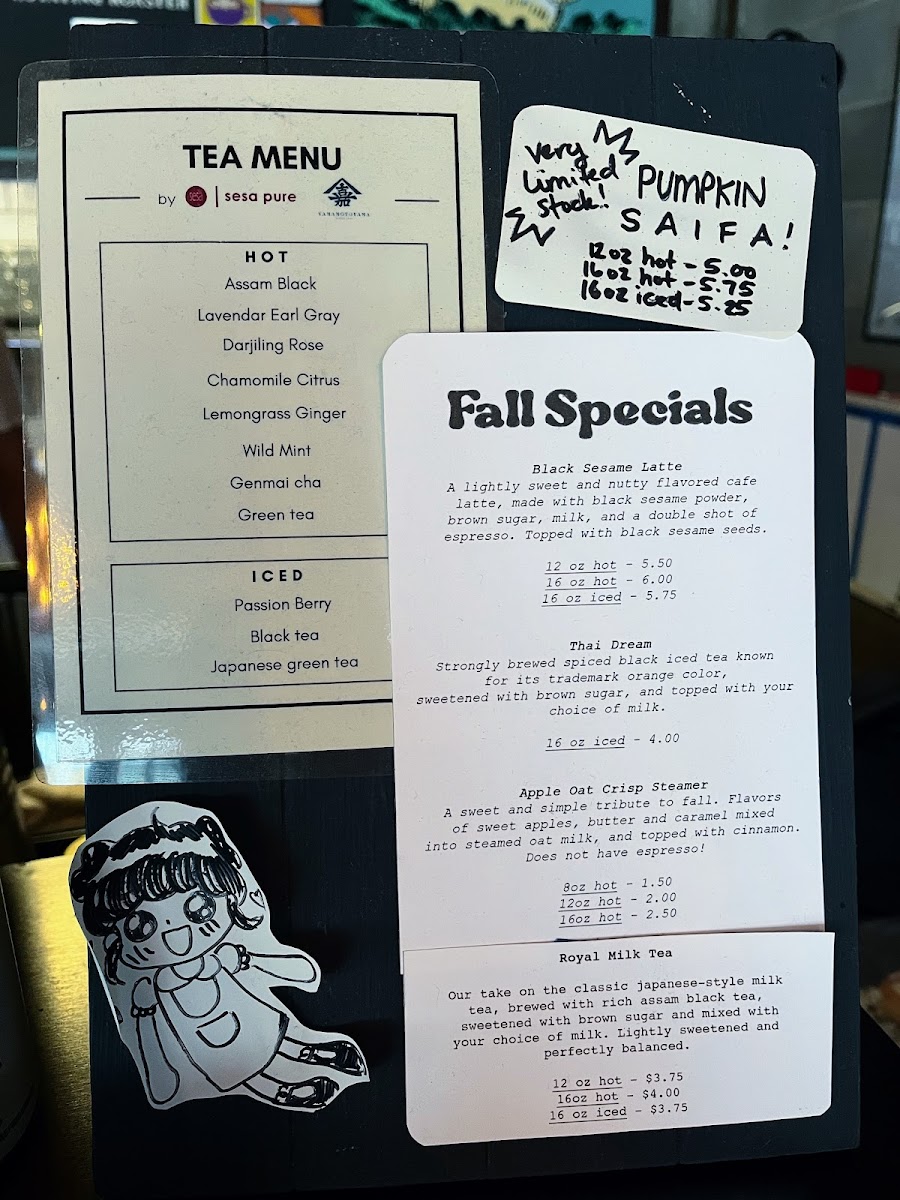 TEA MENU
by sesa pure
嘉
YAMAMOTOYAMA
HOT
Assam Black
Lavendar Earl Gray
Darjiling Rose
Chamomile Citrus
Lemongrass Ginger
Wild Mint
Genmai cha
Green tea
ICED
Passion Berry
Black tea
Japanese green tea
very
limited
stock!
PUMPKIN
SAIFA!
12oz hot - 5.00
16oz hot - 5.75
16oz iced - 5.25
Fall Specials
Black Sesame Latte
A lightly sweet and nutty flavored cafe
latte, made with black sesame powder,
brown sugar, milk, and a double shot of
espresso. Topped with black sesame seeds.
12 oz hot - 5.50
16 oz hot - 6.00
16 oz iced - 5.75
Thai Dream
Strongly brewed spiced black iced tea known
for its trademark orange color,
sweetened with brown sugar, and topped with your
choice of milk.
16 oz iced - 4.00
Apple Oat Crisp Steamer
A sweet and simple tribute to fall. Flavors
of sweet apples, butter and caramel mixed
into steamed oat milk, and topped with cinnamon.
Does not have espresso!
8oz hot - 1.50
12oz hot - 2.00
16oz hot - 2.50
Royal Milk Tea
Our take on the classic japanese-style milk
tea, brewed with rich assam black tea,
sweetened with brown sugar and mixed with
your choice of milk. Lightly sweetened and
perfectly balanced.
12 oz hot - $3.75
16oz hot - $4.00
16 oz iced - $3.75